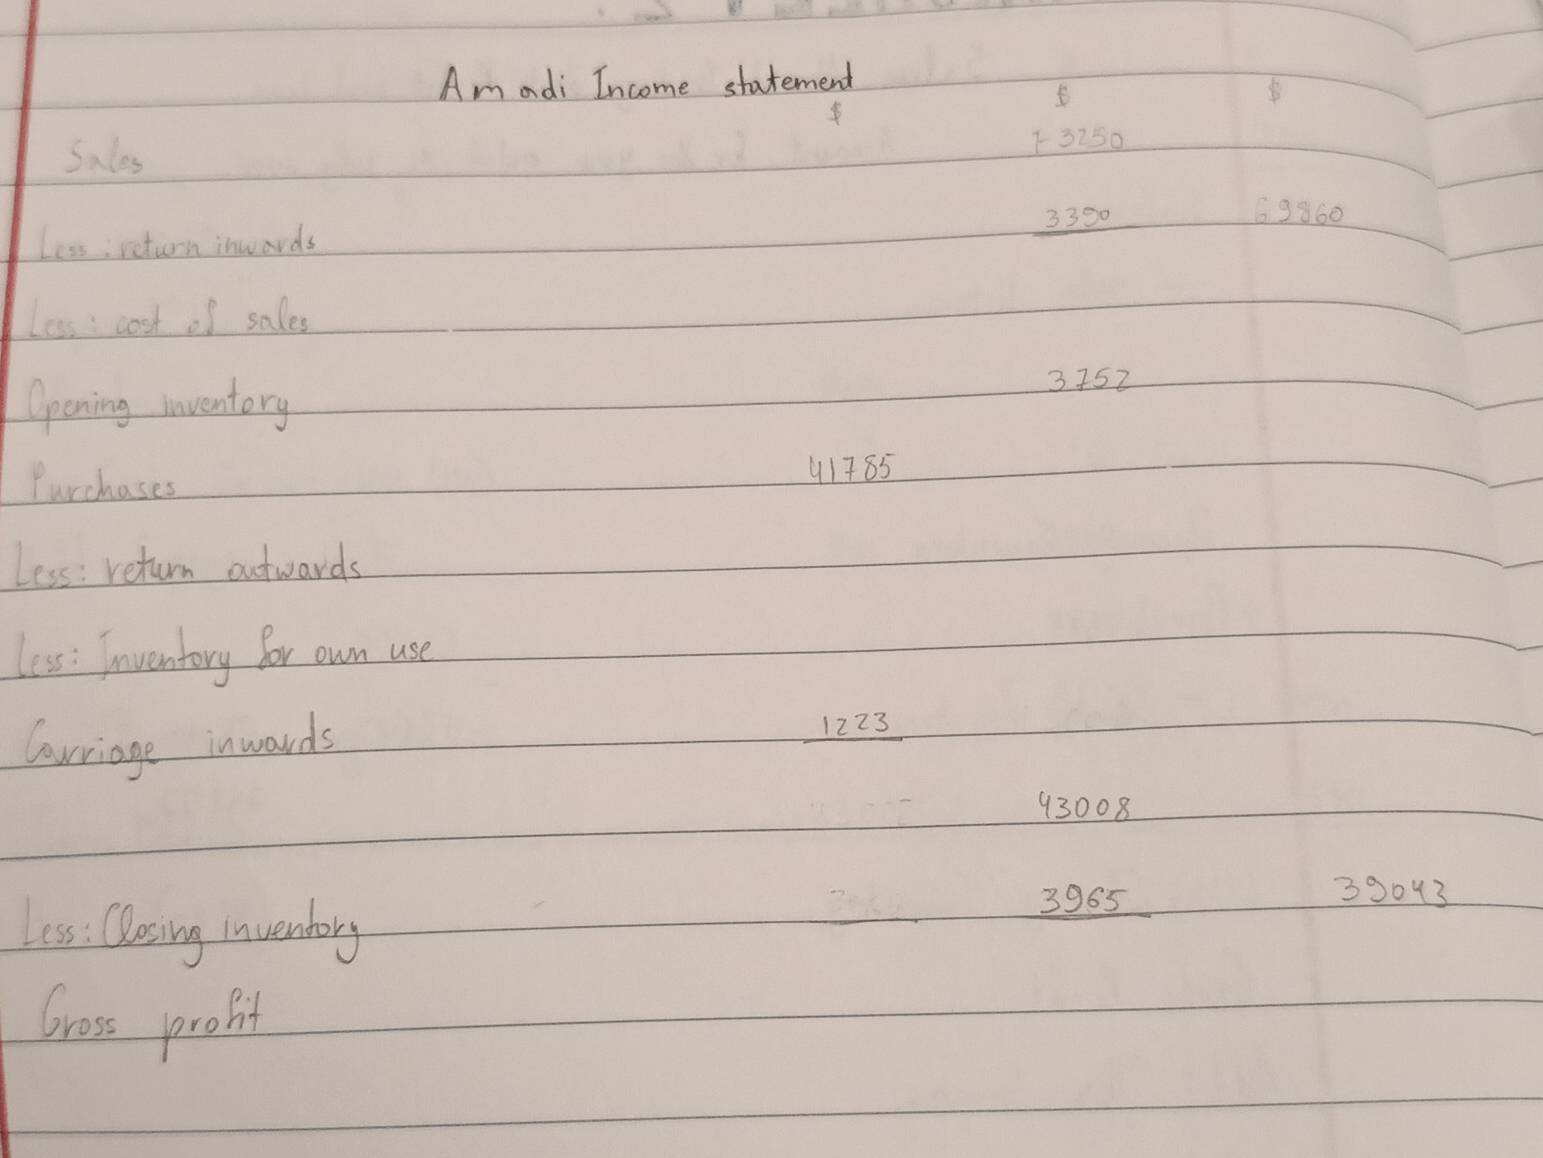 Amadi Income statement
$ $ $
Sales 73250
Less: return inwards 3390 69860
Less: cost of sales
Opening inventory 3752
Purchases 41785
Less: return outwards
Less: Inventory for own use
Carriage inwards 1223
43008
Less: Closing inventory 3965 39043
Gross profit